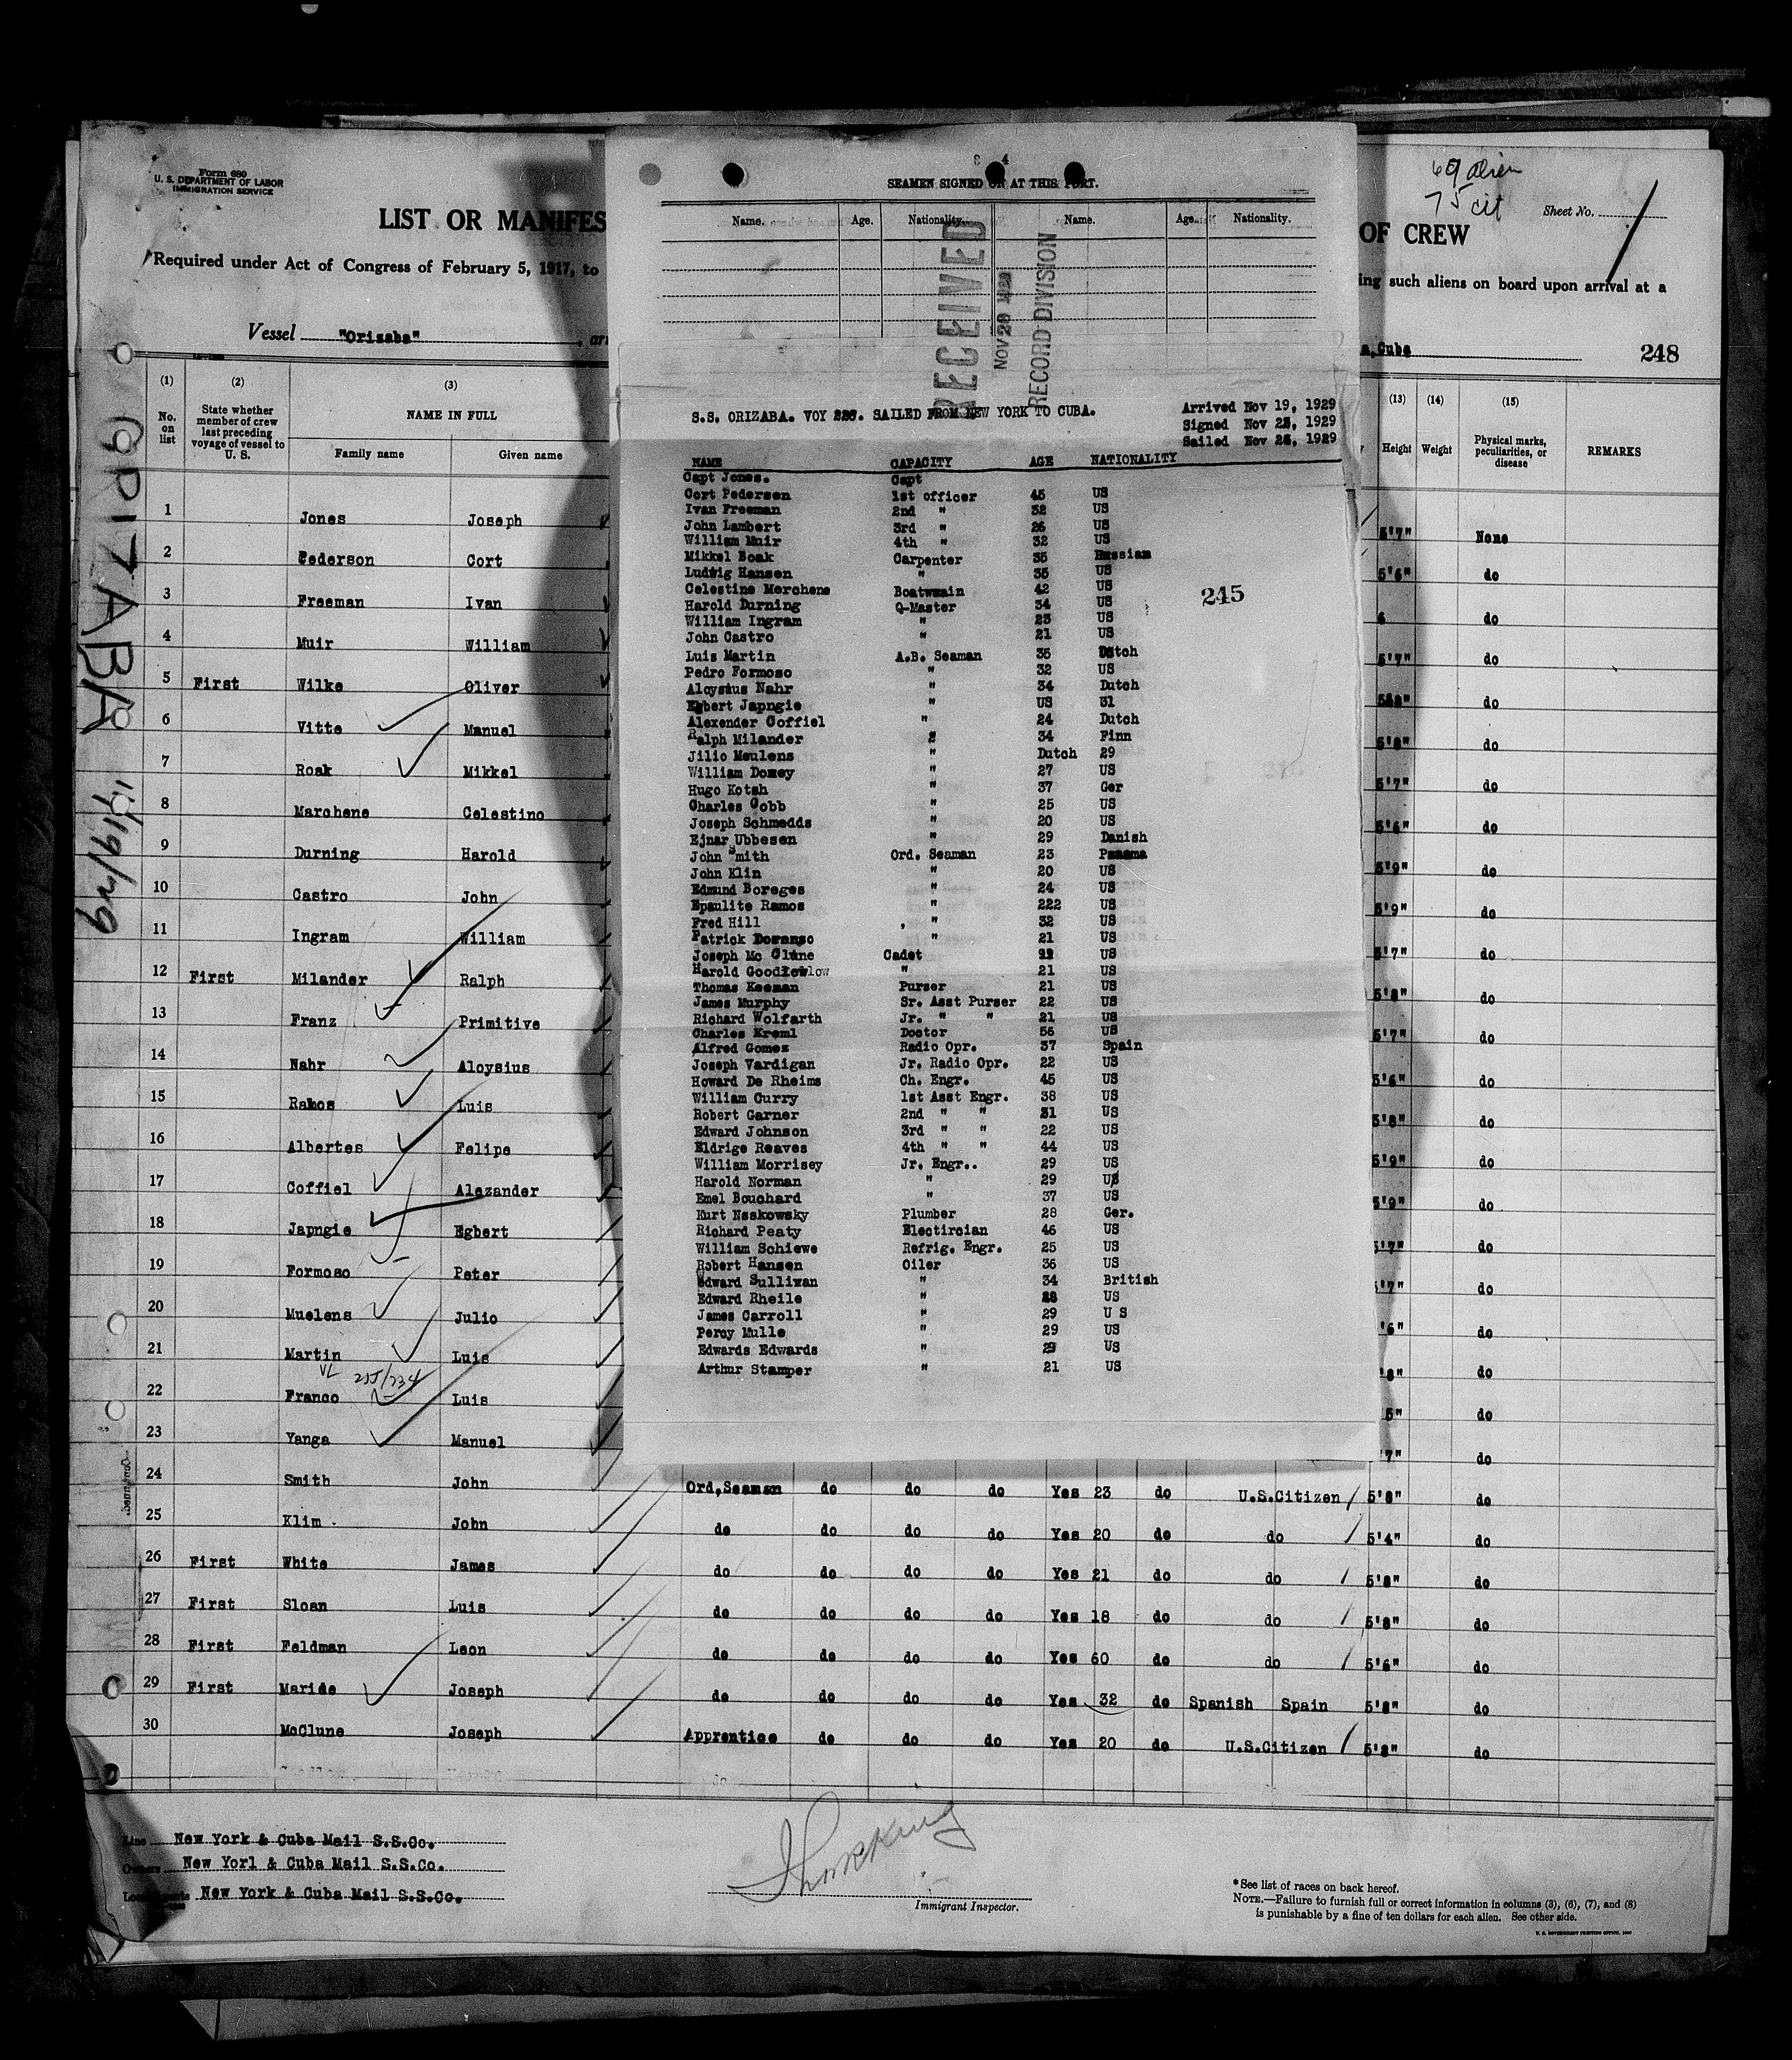 Form 680
U. S. DEPARTMENT OF LABOR
IMMIGRATION SERVICE
LIST OR MANIFES
Required under Act of Congress of February 5, 1917, to
Vessel "Orizaba"
69 alien
75 cit
Sheet No.
OF CREW
ing such aliens on board upon arrival at a
a, Cuba
248
ORIZABA 11/19/29
(1) (2) (3)
No. on list
State whether member of crew last preceding voyage of vessel to U. S.
NAME IN FULL
Family name Given name
(13) (14) (15)
Height Weight Physical marks, peculiarities, or disease REMARKS
1 Jones Joseph 5'7" None
2 Pederson Cort 5'6" do
3 Freeman Ivan 6 do
4 Muir William 5'7" do
5 First Wilke Oliver do
6 Vitte Manuel 5'8" do
7 Roak Mikkel 5'7" do
8 Marchene Celestino 5'6" do
9 Durning Harold 5'9" do
10 Castro John 5'9" do
11 Ingram William 5'7" do
12 First Milander Ralph 5'8" do
13 Franz Primitive 5'7" do
14 Nahr Aloysius 5'6" do
15 Ramos Luis 5'8" do
16 Albertes Felipe 5'9" do
17 Coffiel Alezander 5'9" do
18 Japngie Egbert '7" do
19 Formoso Peter '7" do
20 Muelens Julio '6" do
21 Martin Luis '8" do
22 Franco Luis 5" do
23 Yanga Manuel 7" do
24 Smith John Ord,Seaman do do do Yes 23 do U.S.Citizen 5'8" do
25 Klim John do do do do Yes 20 do do 5'4" do
26 First White James do do do do Yes 21 do do 5'8" do
27 First Sloan Luis do do do do Yes 18 do do 5'8" do
28 First Feldman Leon do do do do Yes 60 do do 5'6" do
29 First Maride Joseph do do do do Yes 32 do Spanish Spain 5'8" do
30 McClune Joseph Apprentice do do do Yes 20 do U.S.Citizen 5'8" do
Line New York & Cuba Mail S.S.Co.
Owners New Yorl & Cuba Mail S.S.Co.
New York & Cuba Mail S.S.Co.
Immigrant Inspector.
*See list of races on back hereof.
NOTE.—Failure to furnish full or correct information in columns (3), (6), (7), and (8)
is punishable by a fine of ten dollars for each alien. See other side.
SEAMEN SIGNED ON AT THIS PORT.
Name. Age. Nationality. Name. Age. Nationality.
RECEIVED
NOV 26 1929
RECORD DIVISION
S.S. ORIZABA. VOY 226. SAILED FROM NEW YORK TO CUBA.
Arrived Nov 19, 1929
Signed Nov 1929
Sailed Nov 1929
NAME CAPACITY AGE NATIONALITY
Capt Jones. Capt
Cort Pedersen 1st officer 45 US
Ivan Freeman 2nd " 32 US
John Lambert 3rd " 26 US
William Muir 4th " 32 US
Mikkel Boak Carpenter 35 Russian
Ludwig Hansen " 35 US
Celestine Merchene Boatwmain 42 US
Harold Durning Q-Master 34 US
William Ingram " 23 US
John Castro " 21 US
245
Luis Martin A.B. Seaman 35 Dutch
Pedro Formoso " 32 US
Aloysius Nahr " 34 Dutch
Egbert Japngie " US 31
Alexender Coffiel " 24 Dutch
Ralph Milander " 34 Finn
Jilio Meulens " Dutch 29
William Domey " 27 US
Hugo Kotsh " 37 Ger
Charles Cobb " 25 US
Joseph Schmedds " 20 US
Ejnar Ubbesen " 29 Danish
John Smith Ord. Seaman 23 Panama
John Klin " 20 US
Edmund Boreges " 24 US
Epaulite Ramos " 222 US
Fred Hill " 32 US
Patrick " 21 US
Joseph Mc Clune Cadet US
Harold Goodlow " 21 US
Thomas Keeman Purser 21 US
James Murphy Sr. Asst Purser 22 US
Richard Wolfarth Jr. " " 21 US
Charles Kreml Doctor 56 US
Alfred Gomez Radio Opr. 37 Spain
Joseph Vardigan Jr. Radio Opr. 22 US
Howard De Rheims Ch. Engr. 45 US
William Curry 1st Asst Engr. 38 US
Robert Garner 2nd " " 31 US
Edward Johnson 3rd " " 22 US
Eldrige Reaves 4th " " 44 US
William Morrisey Jr. Engr.. 29 US
Harold Norman " 29 US
Emel Bouchard " 37 US
Kurt Nsskowsky Plumber 28 Ger.
Richard Peaty Electircian 46 US
William Schiewe Refrig. Engr. 25 US
Robert Hansen Oiler 36 US
Edward Sullivan " 34 British
Edward Rheile " 28 US
James Carroll " 29 U S
Percy Mulle " 29 US
Edwards Edwards " 29 US
Arthur Stamper " 21 US